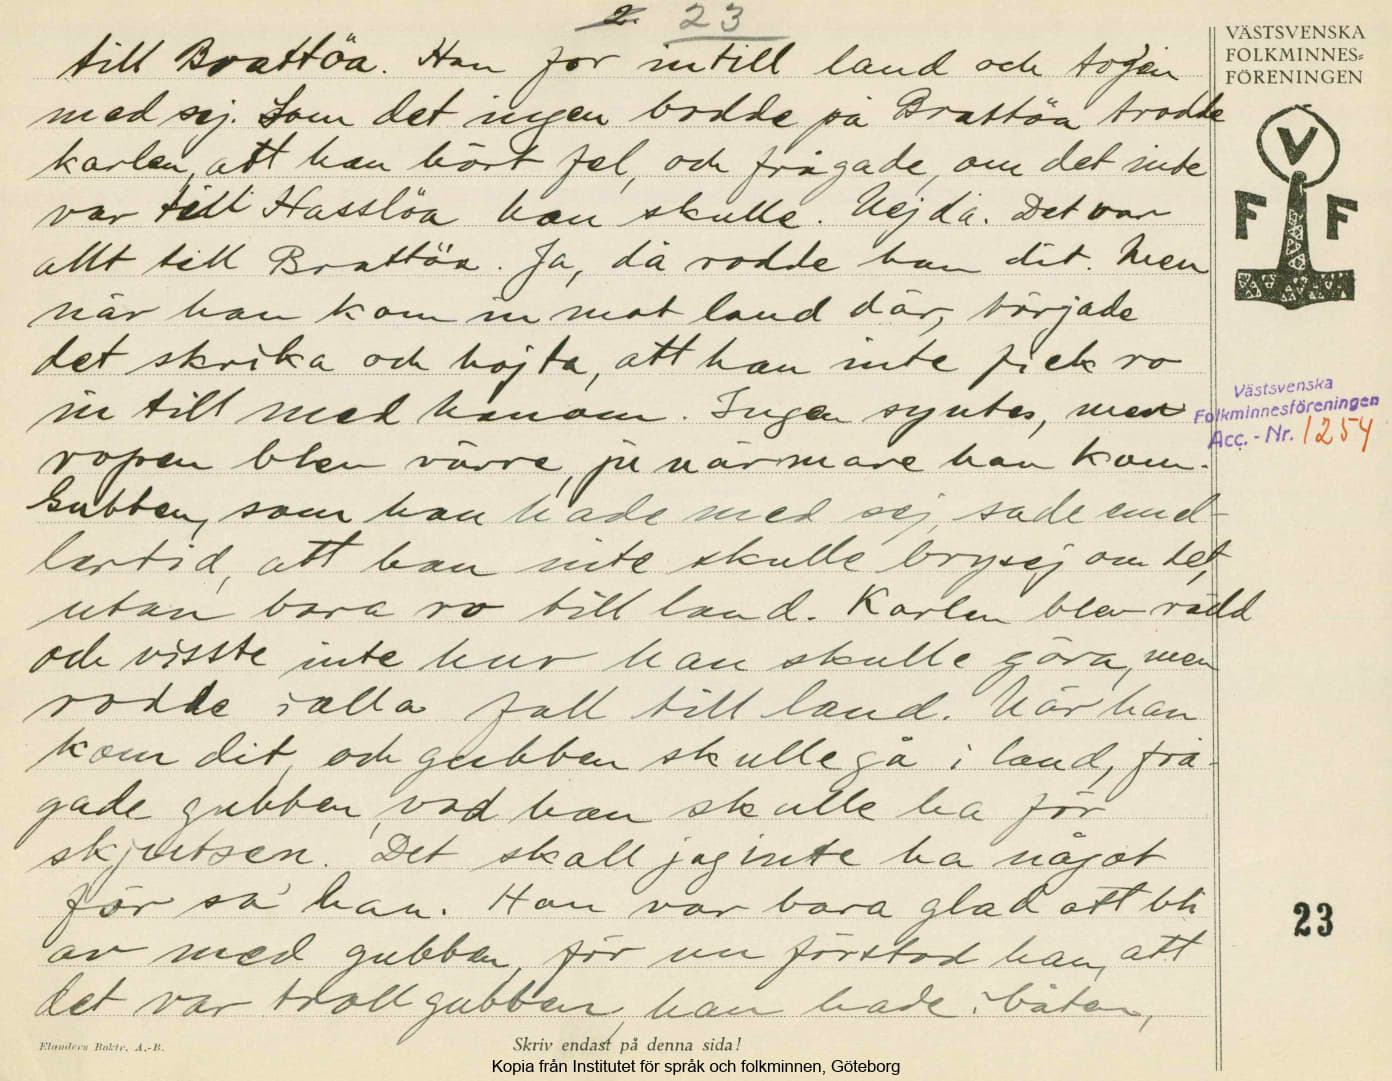 2. 23
till Brattöa. Han for intill land och tog'en
med sej. Som det ingen bodde på Brattöa trodde
karlen, att han hört fel, och frågade, om det inte
var till Hasslöa han skulle. Nejdå. Det var
allt till Brattöa. Ja, då rodde han dit. Men
när han kom in mot land där, började
det skrika och hojta, att han inte fick ro
in till med honom. Ingen syntes, men
ropen blev värre, ju närmare han kom.
Gubben, som han hade med sej, sade emel-
lertid, att han inte skulle bry sej om det,
utan bara ro till land. Karlen blev rädd
och visste inte hur han skulle göra, men
rodde i alla fall till land. När han
kom dit, och gubben skulle gå i land, frå-
gade gubben, vad han skulle ha för
skjutsen. Det skall jag inte ha något
för sa' han. Han var bara glad att bli
av med gubben, för nu förstod han, att
det var trollgubben, han hade i båten,
VÄSTSVENSKA
FOLKMINNES=
FÖRENINGEN
V
F F
Västsvenska
Folkminnesföreningen
Acc. - Nr. 1254
23
Elanders Boktr. A.-B.
Skriv endast på denna sida!
Kopia från Institutet för språk och folkminnen, Göteborg